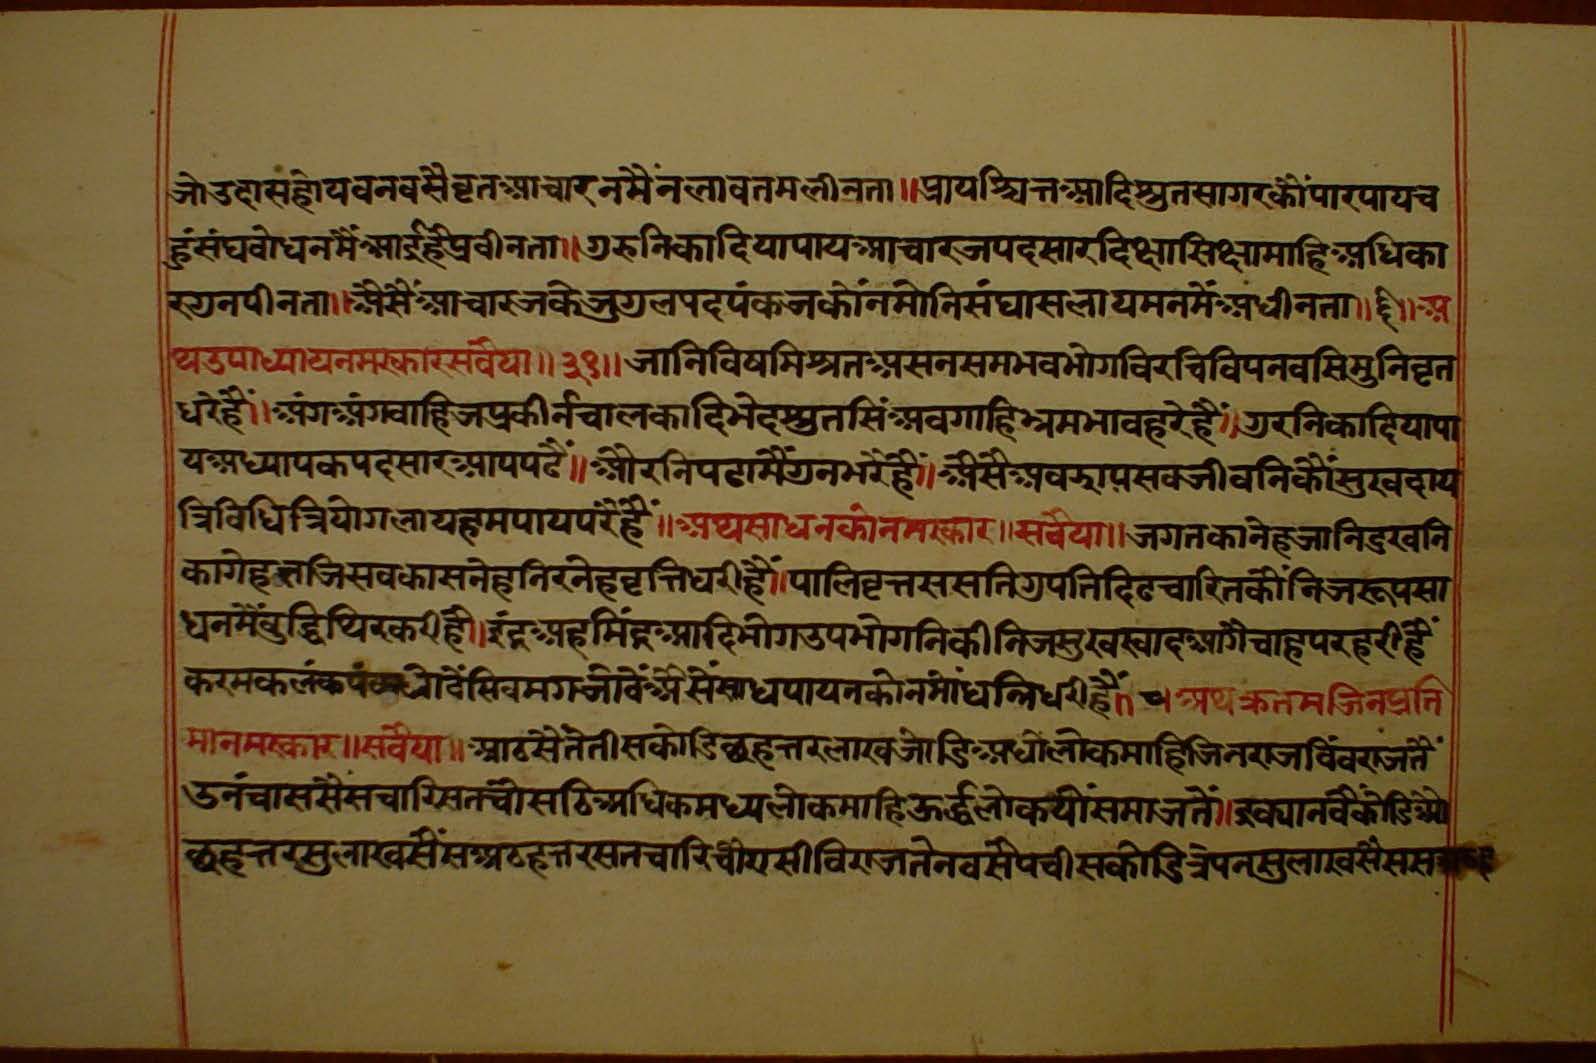 जोउदासहोयवनवसैवृतआचारनमैनलावतमलीनता॥प्रायश्चित्तआदिस्रुतसागरकौंपारपायच
हुंसंघवोधनमैंआईहैप्रवीनता॥गुरुनिकादियापायआचारजपदसारदिक्षासिक्षामाहिअधिका
रगुनपीनता॥औसैंआचारजकेजुगलपदपंकजकोंनमोनिसंघासलायमनमेंअधीनता॥ ॥अ
थउपाध्यायनमस्कारसवैया॥३९॥जानिविषमिश्रतअसनसमभवभोगविरचिविपनवसिमुनिवृत
धरेहैं॥अंगअंगवाहिजप्रकीर्नचालकादिभेदस्रुतसिंअवगाहिभ्रमभावहरेहैं॥गुरनिकादियापा
यअध्यापकपदसारआपपढैं॥औरनिपढामैंगुनभरेहैं॥औसैअवझापसवजीवनिकौंसुखदाय
त्रिविधित्रियोगलायहमपायपरैंहैं॥अथसाधनकोनमस्कार॥सवैया॥जगतकानेहजानिदुखनि
कागेहतजिसवकासनेहनिरनेहवृत्तिधरीहैं॥पालिवृत्तससतिगुपतिदिढचारितकौंनिजरूपसा
धनमैंवुद्धिथिरकरीहैं॥इंद्रअहमिंद्रआदिभोगउपभोगनिकीनिजसुखस्वादआगैचाहपरहरीहैं
करमकलंकपंक सिवमगजोवेंऔसेंसाधपायनकोनमों धरीहैं॥ अथक्रतमजिनप्रति
मानमस्कार॥सवैया॥आठसैतेतीसकोडिछहत्तरलाखजोडिअधोलोकमाहिजिनराजविंवराजतैं
उनंचाससैंसचारिसतचौसठिअधिकमध्यलोकमाहिऊर्द्धलोकयौंसमाजतें॥इक्यानवैकोडिऔ
छहत्तरसुलाखसैंसअठहत्तरसतचारिचौरासीविराजतेनवसैपचीसकोडित्रेपनसुलाखसैंसस